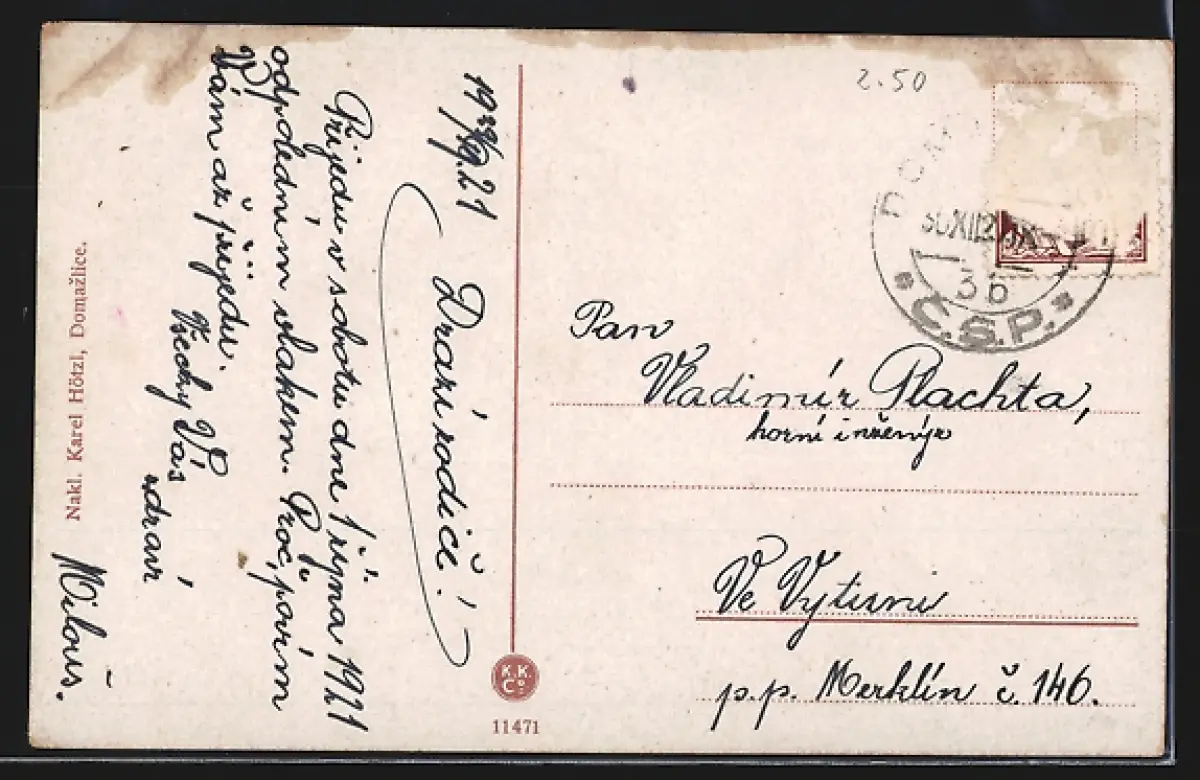 19 29/IX. 21
Drazí rodiče!
Přijedu v sobotu dne 1 října 1921
odpoledním vlakem. Proč, povím
Vám až přijedu.
Všechny Vás
zdraví
Milouš.
Nakl. Karel Hötzl, Domažlice.
K.K.
Co.
11471
2.50
3b
* Č.S.P. *
Pan
Vladimír Plachta,
horní inženýr
Ve Vytuni
p.p. Merklín č. 146.